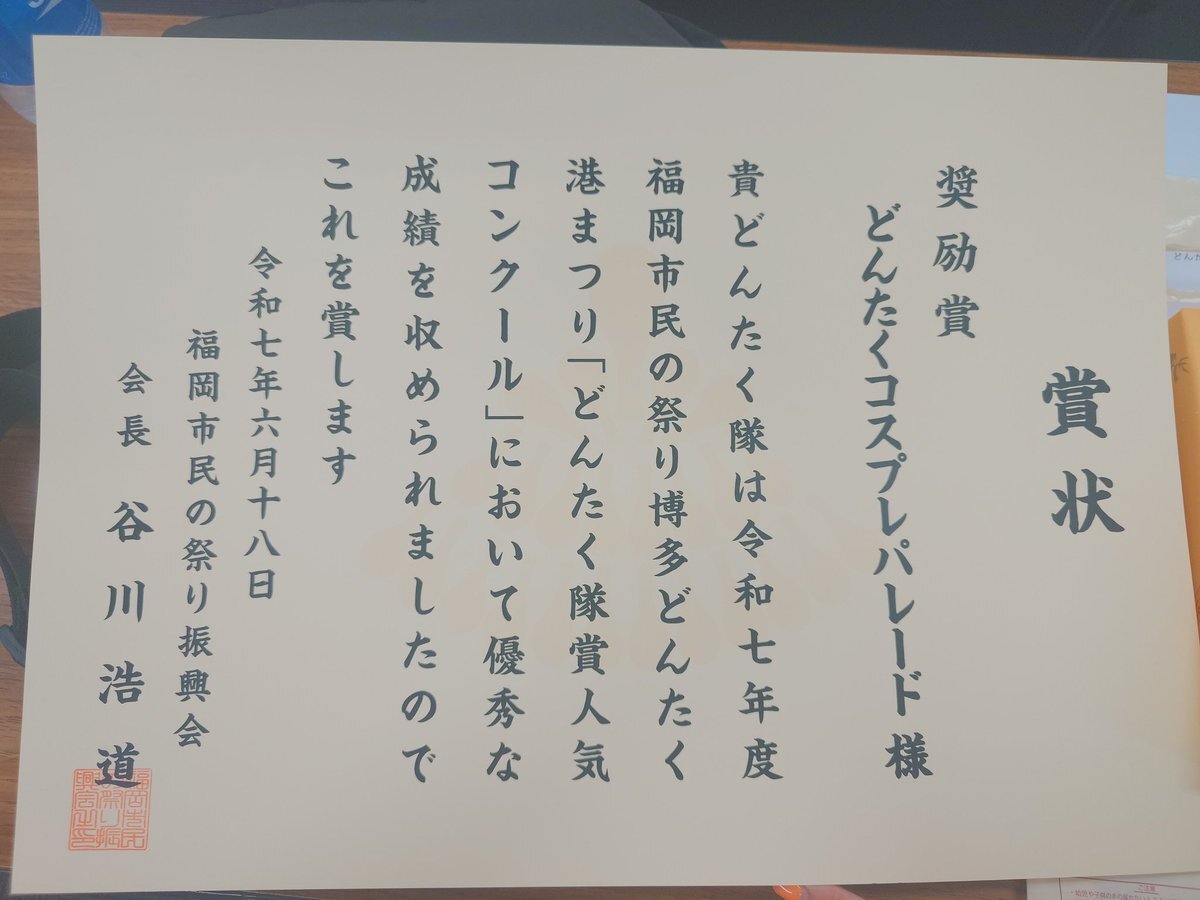 賞状
奨励賞
どんたくコスプレパレード様
貴どんたく隊は令和七年度
福岡市民の祭り博多どんたく
港まつり「どんたく隊賞人気
コンクール」において優秀な
成績を収められましたので
これを賞します
令和七年六月十八日
福岡市民の祭り振興会
会長 谷川浩道
ご注意